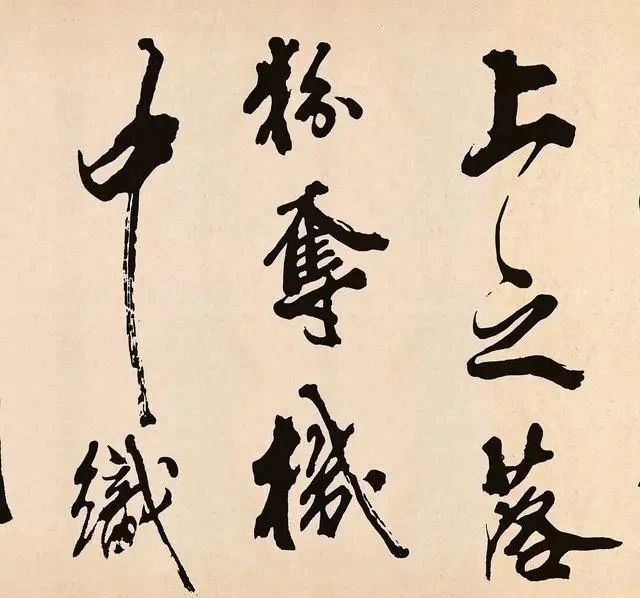 上之落
粉奪機
中織